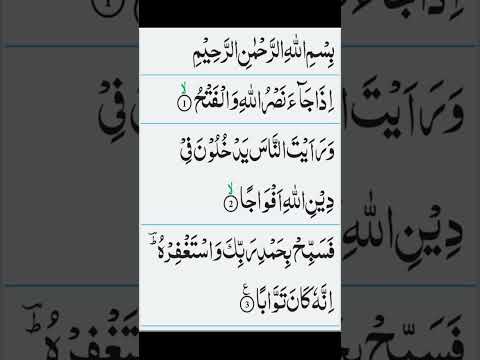 بِسْمِ اللهِ الرَّحْمٰنِ الرَّحِيْمِ
اِذَا جَآءَ نَصْرُ اللهِ وَالْفَتْحُ ۙ ①
وَرَاَيْتَ النَّاسَ يَدْخُلُوْنَ فِيْ
دِيْنِ اللهِ اَفْوَاجًا ۙ ②
فَسَبِّحْ بِحَمْدِ رَبِّكَ وَاسْتَغْفِرْهُ ؔؕ
اِنَّهٗ كَانَ تَوَّابًا ③ ع